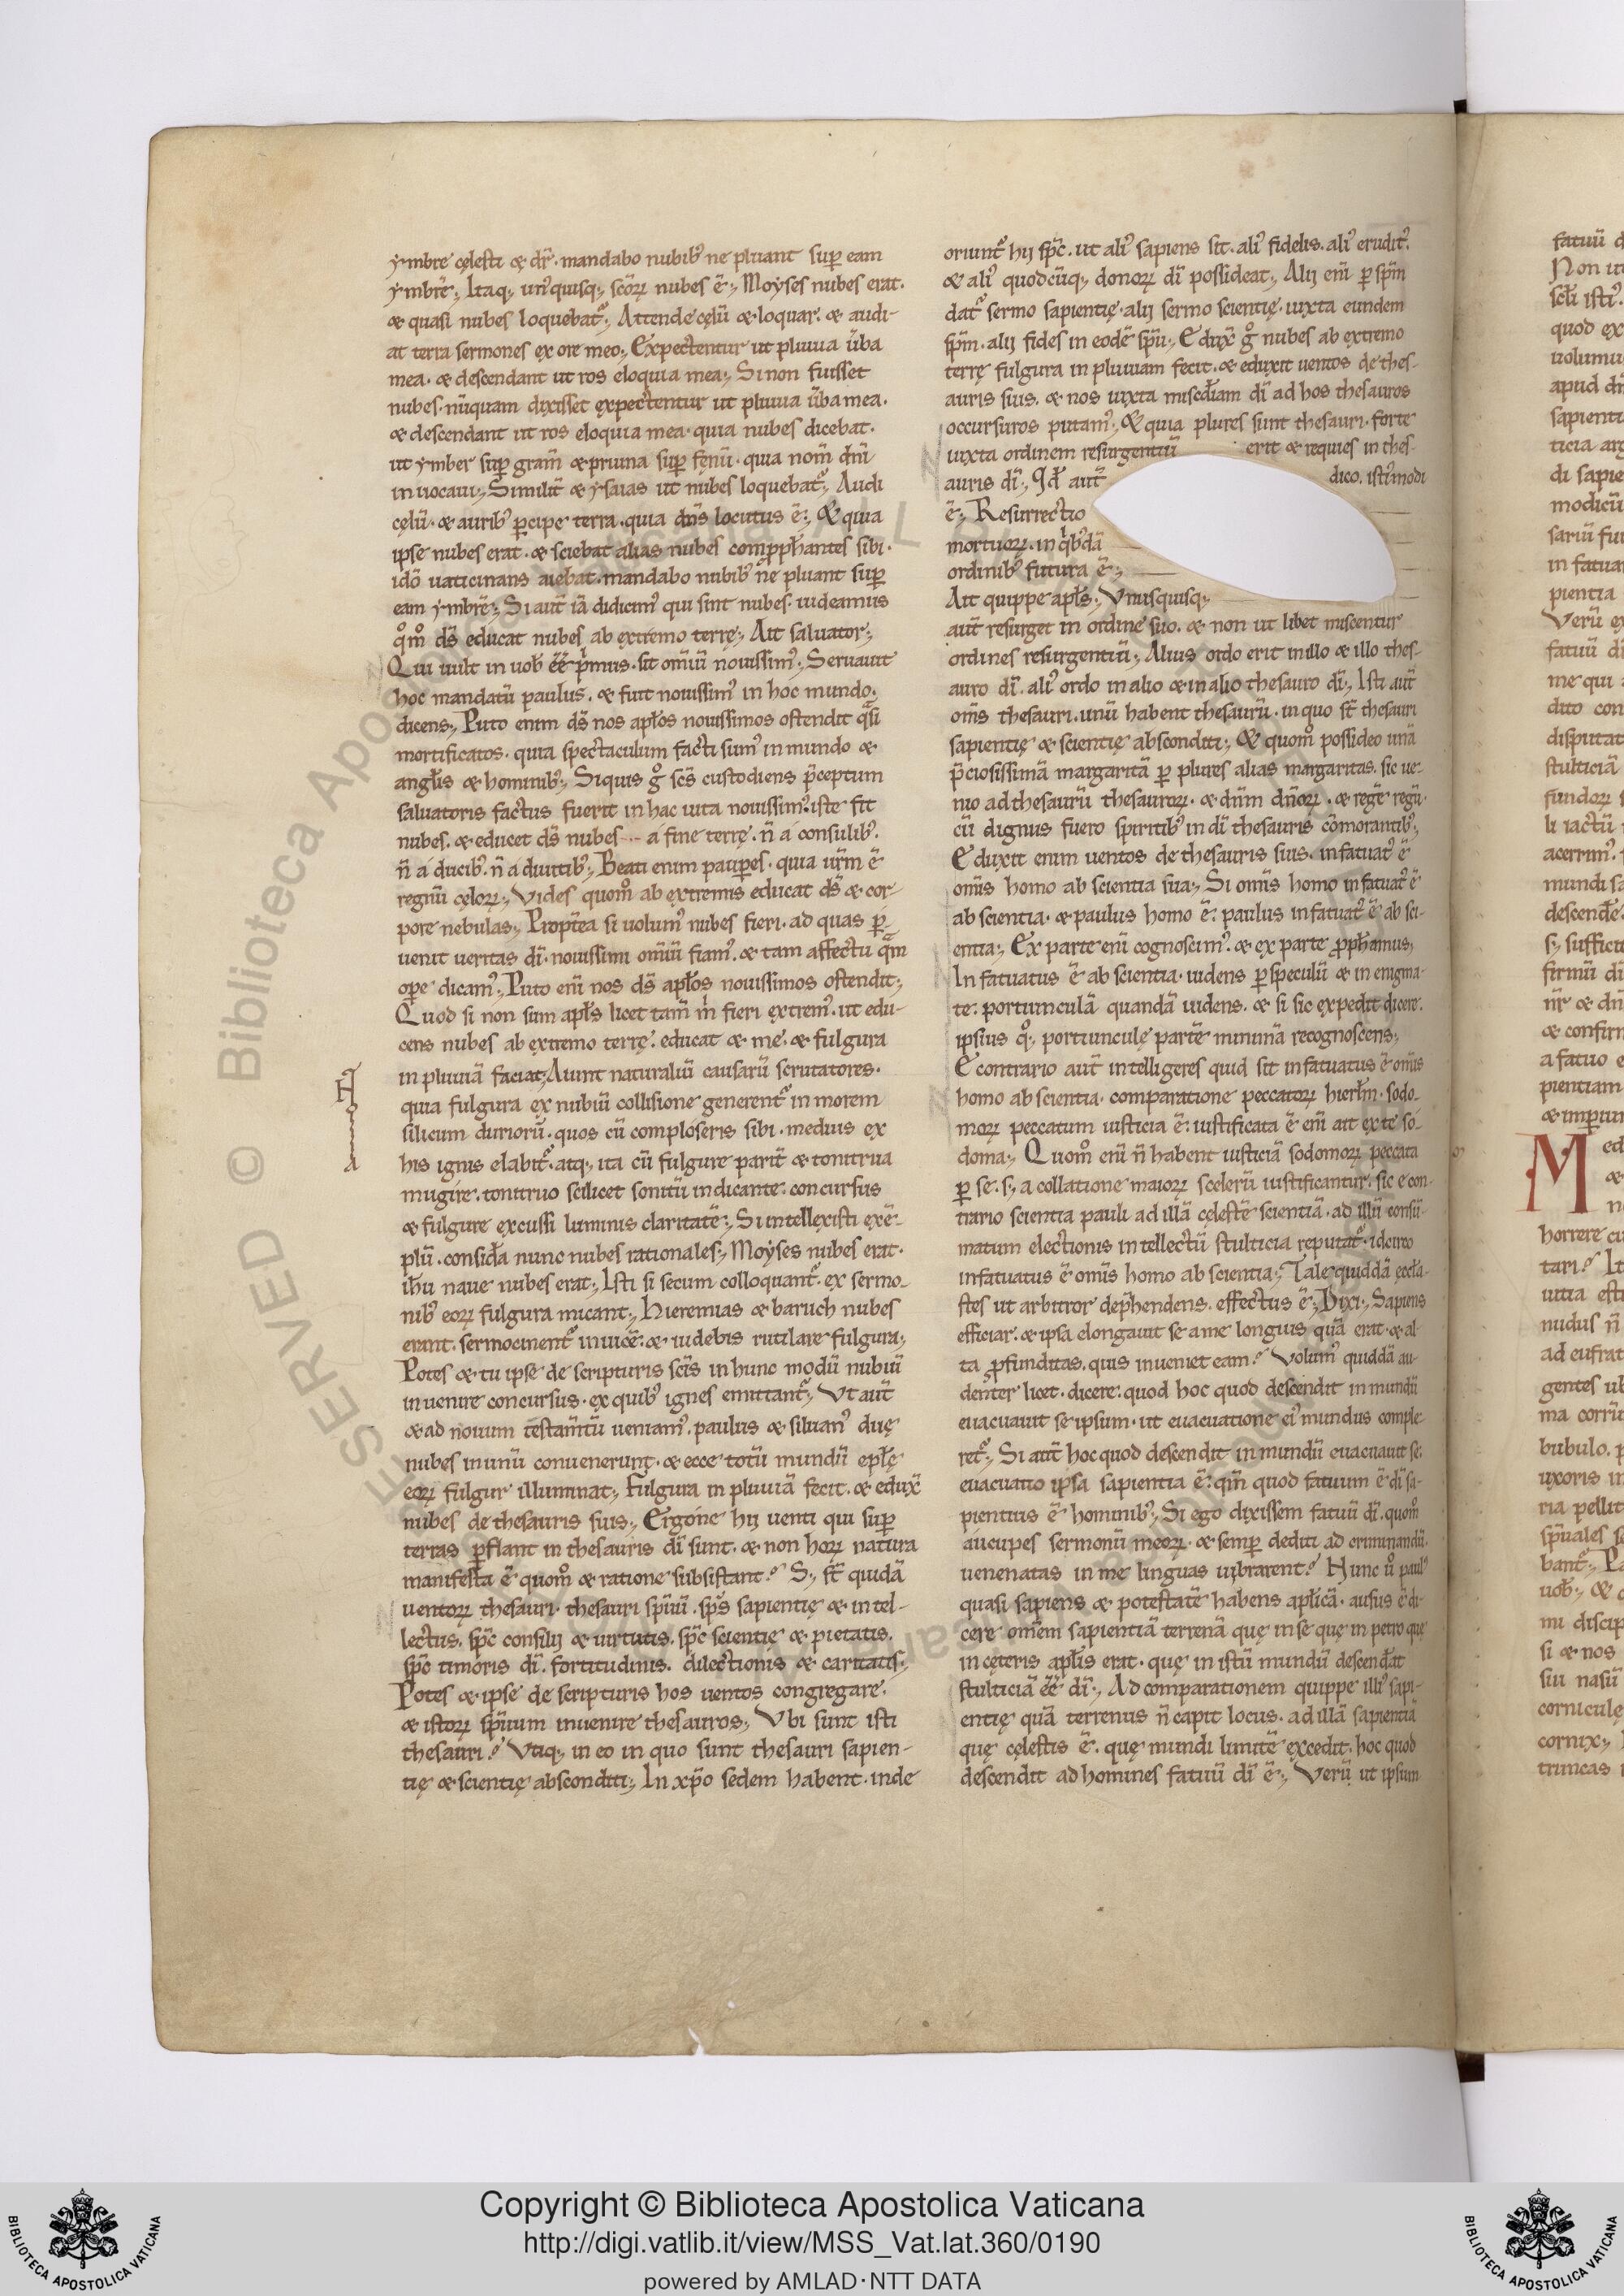 ymbrē cęlesti & dr̄. mandabo nubib; ne pluant sup̲ eam
ymbrē; Itaq; unꝰquisq; sc̄oꝝ nubes ē; Moyses nubes erat.
& quasi nubes loquebat᷑; Attende cęlū & loquar. & audi-
at terra sermones ex ore meo; Expectentur ut pluuia ūba
mea. & descendant ut ros eloquia mea; Si non fuisset
nubes. nūquam dixisset expectentur ut pluuia ūba mea.
& descendant ut ros eloquia mea. quia nubes dicebat.
ut ymber sup̲ gram̄ & pruina sup̲ fęnū. quia nom̄ dn̄i
inuocaui; Similit̄ & ysaias ut nubes loquebat᷑; Audi
cęlū. & aurib; p̲cipe terra. quia dn̄s locutus ē; & quia
ipse nubes erat. & sciebat alias nubes comp̲ph̄antes sibi.
idō uaticinans aiebat. mandabo nubib; ne pluant sup̲
eam ymbrē; Si aut̄ iā didicimꝰ qui sint nubes. uideamus
qͦm̊ ds̄ educat nubes ab extremo terrę; Ait saluator;
Qui uult in uob̄ ēē p̄mus. sit om̄iū nouissimꝰ; Seruauit
hoc mandatū paulus. & fuit nouissimꝰ in hoc mundo;
dicens; Puto enim ds̄ nos apl̄os nouissimos ostendit q̄si
mortificatos. quia spectaculum facti sumꝰ in mundo &
angl̄is & hominib; Siquis gͦ sc̄s custodiens p̄ceptum
saluatoris factus fuerit in hac uita nouissimꝰ. iste fit
nubes. & educet ds̄ nubes a fine terrę. n̄ a consulib;.
n̄ a ducib;. n̄ a diuitib; Beati enim paup̲es. quia ur̄m ē
regnū cęloꝝ; Vides quom̊ ab extremis educat ds̄ & cor-
pore nebulas; Propt̄ea si uolumꝰ nubes fieri. ad quas p̲-
uenit ueritas dī. nouissimi om̄iū fiamꝰ. & tam affectu q̄m
op̲e dicamꝰ; Puto enī nos ds̄ apl̄os nouissimos ostendit;
Quod si non sum apl̄s licet tam̄ m̄ fieri extremꝰ. ut edu-
cens nubes ab extremo terrę. educat & me. & fulgura
in pluuiā faciat; Aiunt naturaliū causarū scrutatores.
quia fulgura ex nubiū collisione generent᷑ in morem
silicum durioꝝ. quos cū comploseris sibi. medius ex
his ignis elabit᷑. atq; ita cū fulgure parit̄ & tonitrua
mugire. tonitruo scilicet sonitū indicante. concursus
& fulgure excussi luminis claritatē; Si intellexisti exē-
plū. consid̄a nunc nubes rationales; Moyses nubes erat.
ih̄u naue nubes erat; Isti si secum colloquant᷑. ex sermo-
nib; eoꝝ fulgura micant; Hieremias & baruch nubes
erant. sermocinent᷑ inuicē. & uidebis rutilare fulgura;
Potes & tu ipse de scripturis sc̄is in hunc modū nubiū
inuenire concursus. ex quib; ignes emittant᷑; Vt aut̄
& ad nouum testam̄tū ueniamꝰ. paulus & siluanꝰ duę
nubes in unū conuenerunt. & ecce totū mundū epl̄ę
eoꝝ fulgur illuminat; Fulgura in pluuiā fecit. & edux̄
nubes de thesauris suis; Ergóne hij uenti qui sup̲
terras p̲flant in thesauris dī sunt. & non hoꝝ natura
manifesta ē quom̊ & ratione subsistant? S; st̄ quidā
uentoꝝ thesauri. thesauri sp̄iuū. sp̄s sapientię & intel-
lectus. sp̄c consilij & uirtutis. sp̄c scientię & pietatis.
sp̄c timoris dī. fortitudinis. dilectionis & caritatis;
Potes & ipse de scripturis hos uentos congregare.
& istoꝝ sp̄iuum inuenire thesauros; Vbi sunt isti
thesauri? Vtiq; in eo in quo sunt thesauri sapien-
tię & scientię absconditi; In xp̄o sedem habent. inde
oriunt᷑ hij sp̄c. ut aliꝰ sapiens sit. aliꝰ fidelis. aliꝰ eruditꝰ.
& aliꝰ quodcūq; donoꝝ dī possideat; Alij enī p̲ sp̄m
dat᷑ sermo sapientię. alij sermo scientię. iuxta eundem
sp̄m. alij fides in eodē sp̄u; Edux̄ gͦ nubes ab extremo
terrę fulgura in pluuiam fecit. & eduxit uentos de thes-
auris suis. & nos iuxta miscd̄iam dī ad hos thesauros
occursuros putamꝰ; & quia plures sunt thesauri. forte
iuxta ordinem resurgentiū erit & requies in thes-
auris dī; Qd̄ aut̄ dico. istꝰmodi
ē; Resurrectio
mortuoꝝ. in qb;dā
ordinib; futura ē;
Ait quippe apl̄s; Vnusquisq;
aut̄ resurget in ordine suo. & non ut libet miscentur
ordines resurgentiū; Alius ordo erit in illo & illo thes-
auro dī. aliꝰ ordo in alio & in alio thesauro dī; Isti aut̄
om̄s thesauri. unū habent thesaurū. in quo st̄ thesauri
sapientię & scientię absconditi; & quom̊ possideo unā
p̄ciosissimā margaritā p̲ plures alias margaritas. sic ue-
nio ad thesaurū thesauroꝝ. & dn̄m dn̄oꝝ. & regē regū.
cū dignus fuero spiritib; in dī thesauris cōmorantib;
Eduxit enim uentos de thesauris suis. infatuatꝰ ē
om̄is homo ab scientia sua; Si om̄is homo infatuatꝰ ē
ab scientia. & paulus homo ē. paulus infatuatꝰ ē ab sci-
entia; Ex parte enī cognoscimꝰ. & ex parte p̲ph̄amus;
Infatuatus ē ab scientia. uidens p̲ speculū & in enigma-
te. portiunculā quandā uidens. & si sic expedit dicere.
ipsius q; portiunculę partē minimā recognoscens;
E contrario aut̄ intelligeres quid sit infatuatus ē om̄is
homo ab scientia. comparatione peccatoꝝ hierl̄m. sodo-
moꝝ peccatum iusticia ē. iustificata ē enī ait ex te so-
doma; Quom̊ enī n̄ habent iusticiā sodomoꝝ peccata
p̲ se. s; a collatione maioꝝ scelerū iustificantur. sic e con-
trario scientia pauli ad illā cęlestē scientiā. ad illū consū-
matum electionis intellectū stulticia reputat᷑. idcirco
infatuatus ē om̄is homo ab scientia; Tale quiddā eccl̄a-
stes ut arbitror dep̄hendens. effectus ē; Dixi; Sapiens
efficiar. & ipsa elongauit se a me longius quā erat. & al-
ta p̲funditas. quis inueniet eam? Volumꝰ quiddā au-
denter licet. dicere. quod hoc quod descendit in mundū
euacuauit se ipsum. ut euacuatione eiꝰ mundus comple-
ret᷑; Si aut̄ hoc quod descendit in mundū euacuauit se.
euacuatio ipsa sapientia ē. qm̄ quod fatuum ē dī sa-
pientius ē hominib; Si ego dixissem fatuū dī. quom̊
aucupes sermonū meoꝝ. & semp̲ dediti ad criminandū.
uenenatas in me linguas uibrarent? Hunc ū paulꝰ
quasi sapiens & potestatē habens apl̄icā. ausus ē di-
cere om̄em sapientiā terrenā quę in se quę in petro quę
in cęteris apl̄is erat. quę in istū mundū descend̄at
stulticiā ēē dī; Ad comparationem quippe illiꝰ sapi-
entię quā terrenus n̄ capit locus. ad illā sapientiā
quę cęlestis ē. quę mundi limitē excedit. hoc quod
descendit ad homines fatuū dī ē; Verū ut ipsum
Copyright © Biblioteca Apostolica Vaticana
http://digi.vatlib.it/view/MSS_Vat.lat.360/0190
powered by AMLAD·NTT DATA